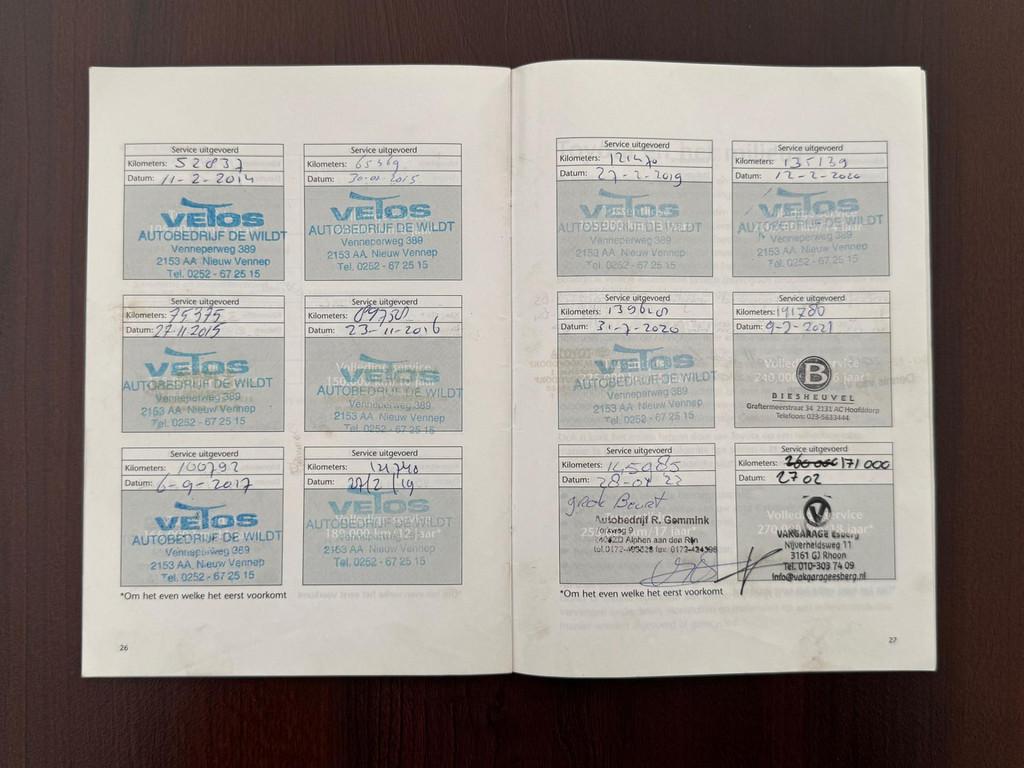 Service uitgevoerd
Kilometers: 52837
Datum: 11-2-2014
VETOS
AUTOBEDRIJF DE WILDT
Venneperweg 389
2153 AA Nieuw Vennep
Tel. 0252 - 67 25 15
Service uitgevoerd
Kilometers: 65369
Datum:
VETOS
AUTOBEDRIJF DE WILDT
Venneperweg 389
2153 AA Nieuw Vennep
Tel. 0252 - 67 25 15
Service uitgevoerd
Kilometers: 75375
Datum: 27-11-2015
VETOS
AUTOBEDRIJF DE WILDT
Venneperweg 389
2153 AA Nieuw Vennep
Tel. 0252 - 67 25 15
Service uitgevoerd
Kilometers:
Datum: 23-11-2016
Volledige service
VETOS
AUTOBEDRIJF DE WILDT
Venneperweg 389
2153 AA Nieuw Vennep
Tel. 0252 - 67 25 15
Service uitgevoerd
Kilometers: 100792
Datum: 6-9-2017
VETOS
AUTOBEDRIJF DE WILDT
Venneperweg 389
2153 AA Nieuw Vennep
Tel. 0252 - 67 25 15
Service uitgevoerd
Kilometers:
Datum: 27/2/19
VETOS
AUTOBEDRIJF DE WILDT
12 jaar*
Venneperweg 389
2153 AA Nieuw Vennep
Tel. 0252 - 67 25 15
*Om het even welke het eerst voorkomt
26
Service uitgevoerd
Kilometers: 121470
Datum: 27-2-2019
VETOS
AUTOBEDRIJF DE WILDT
Venneperweg 389
2153 AA Nieuw Vennep
Tel. 0252 - 67 25 15
Service uitgevoerd
Kilometers: 135139
Datum: 12-2-2020
VETOS
AUTOBEDRIJF DE WILDT
Venneperweg 389
2153 AA Nieuw Vennep
Tel. 0252 - 67 25 15
Service uitgevoerd
Kilometers:
Datum: 31-7-2020
VETOS
AUTOBEDRIJF DE WILDT
Venneperweg 389
2153 AA Nieuw Vennep
Tel. 0252 - 67 25 15
Service uitgevoerd
Kilometers: 141780
Datum: 9-7-2021
Volledige service
240.000 km/16 jaar*
B
BIESHEUVEL
Graftermeerstraat 34 2131 AC Hoofddorp
Telefoon: 023-5633444
Service uitgevoerd
Kilometers: 145985
Datum: 28-07 22
grote Beurt
Autobedrijf R. Gemmink
Alphen aan den Rijn
17 jaar*
Service uitgevoerd
Kilometers: 171 000
Datum: 27 02
Volledige service
270.000 km/18 jaar*
V
VAKGARAGE Esberg
Nijverheidsweg 11
3161 GJ Rhoon
Tel. 010-303 74 09
info@vakgarageesberg.nl
*Om het even welke het eerst voorkomt
27